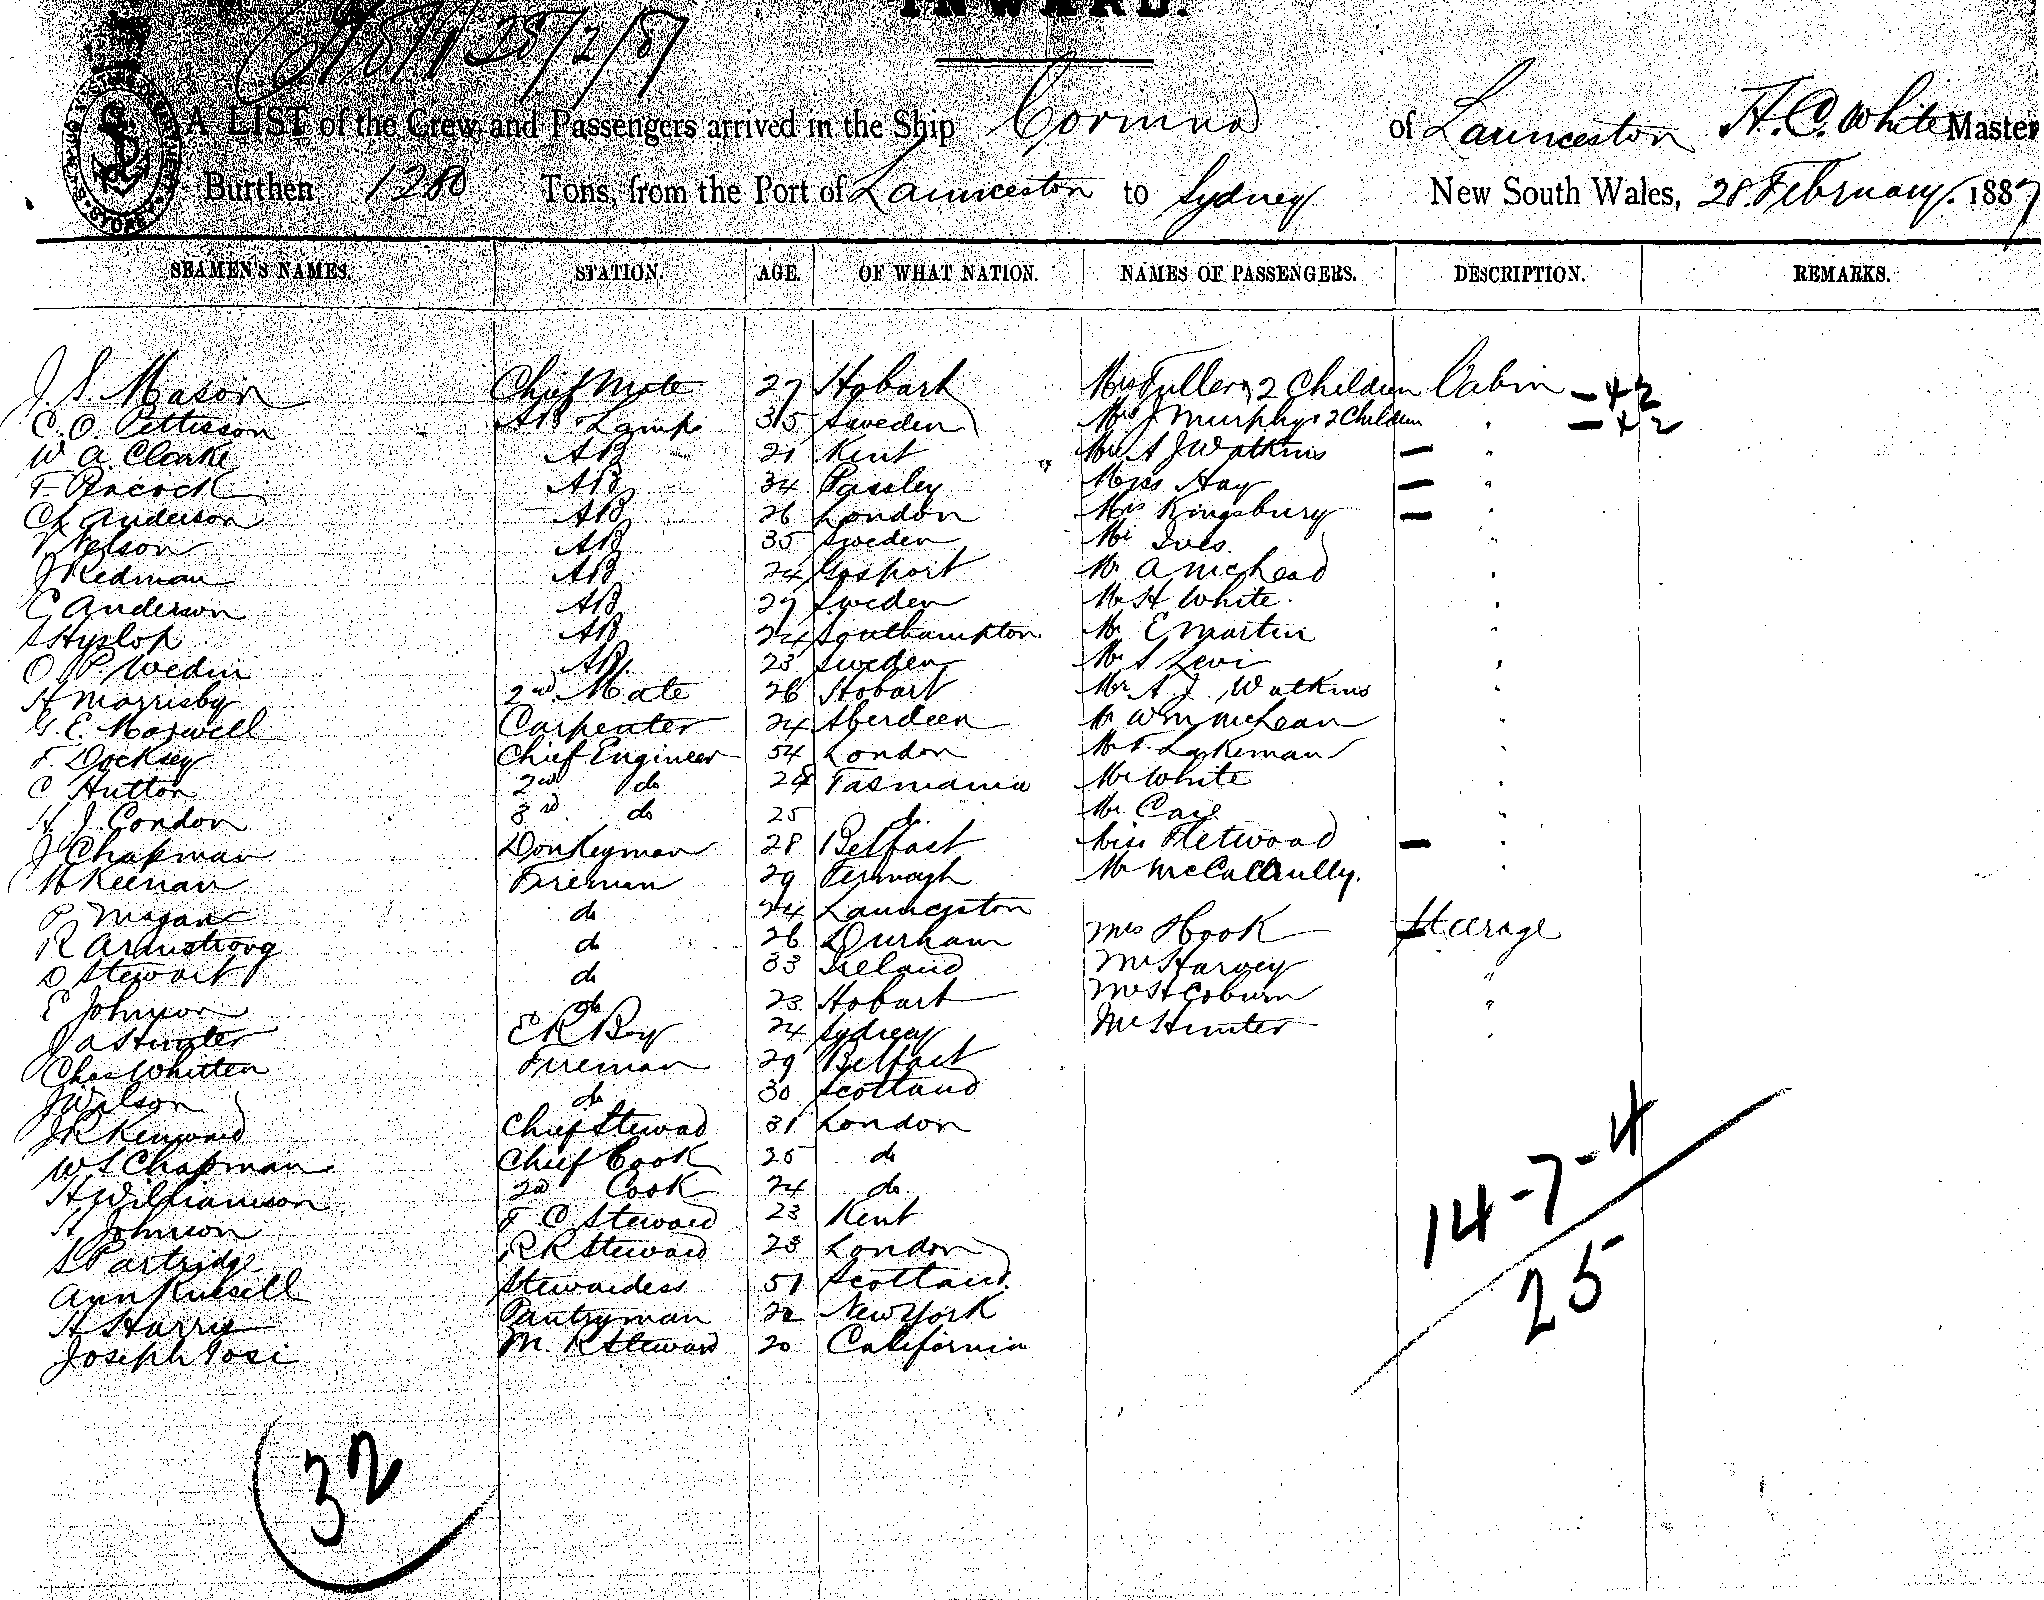 INWARD.
28/2/87
A LIST of the Crew and Passengers arrived in the Ship Corinna of Launceston H. C. White Master
Burthen 1280 Tons, from the Port of Launceston to Sydney New South Wales, 28 February 1887
SEAMEN'S NAMES. STATION. AGE. OF WHAT NATION. NAMES OF PASSENGERS. DESCRIPTION. REMARKS.
J. S. Mason Chief Mate 27 Hobart Mrs Fuller & 2 Children Cabin - +2
C. O. Petterson AB & Lamps 35 Sweden Mrs J Murphy & 2 Children " - +2
W. A. Clarke AB 21 Kent Mrs A J Watkins - "
F. Peacock AB 34 Paisley Miss Hay - "
Ch Anderson AB 26 London Mrs Kingsbury - "
Nelson AB 35 Sweden Mr Ives "
J Redman AB 24 Gosport Mr "
C Anderson AB 27 Sweden Mr H White "
S Hyslop AB 24 Southampton Mr E Martin "
O P Wedin AB 23 Sweden Mr S Levi "
H Morrisby 2nd Mate 26 Hobart Mr A. J. Watkins "
G. E. Maxwell Carpenter 24 Aberdeen Mr Wm McLean "
F. Docksey Chief Engineer 54 London Mr Lakeman "
C Hutton 2nd do 24 Tasmania Mr White "
H. J. Condon 3rd do 25 do Mr "
J Chapman Donkeyman 28 Belfast Miss Fletwood - "
Keenan Fireman 29 Mr "
P Magan do 24 Launceston
R Armstrong do 26 Durham Mrs Hook - Steerage
D Stewart do 33 Ireland Mr Harvey "
E Johnson do 23 Hobart Mr H Coburn "
Jas Hunter E R Boy 24 Sydney Mr Hunter "
Chas Whitten Fireman 29 Belfast
J Wilson do 30 Scotland
J R Kenward Chief Steward 31 London
W S Chapman Chief Cook 25 do
H Williamson 2nd Cook 24 do
H Johnson F C Steward 23 Kent
S Partridge R R Steward 23 London
Ann Russell Stewardess 51 Scotland
H Harris Pantryman 22 New York
Joseph Tosi M. R Steward 20 California
14-7-4
25
32